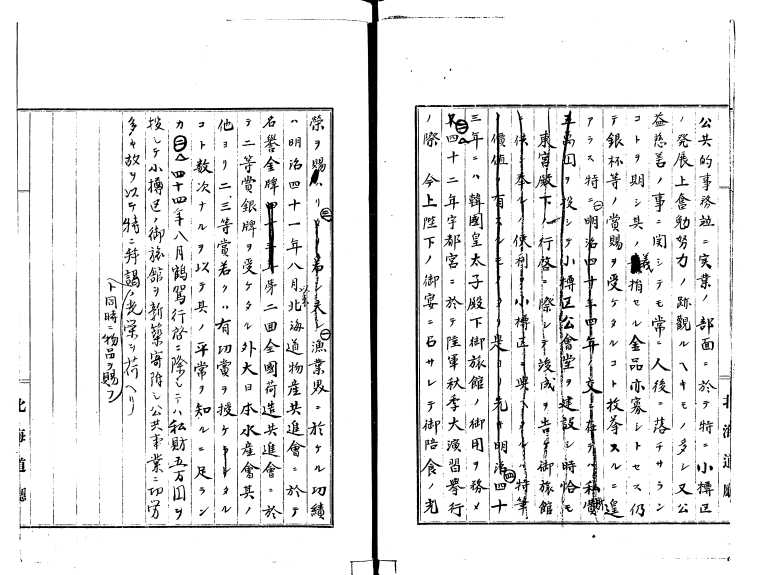 公共的事務並ニ実業ノ部面ニ於テ特ニ小樽区
ノ発展上奮勉努力ノ跡観ルヘキモノ多シ又公
益慈善ノ事ニ関シテモ常ニ人後ニ落チサラン
コトヲ期シ其ノ義捐セル金品亦寡シトセス仍
テ銀杯等ノ賞賜ヲ受ケタルコト枚挙スルニ遑
アラス特ニ(一)明治四十年四年ノ交ニ在テハ私費
五萬円ヲ投シテ小樽区公會堂ヲ建設シ時恰モ
東宮殿下ノ行啓ニ際シテ竣成ヲ告ケ御旅館
ニ供シ奉ルノ便利ヲ小樽区ニ與ヘタルハ特筆ノ
價値ヲ有スルモノタリ是ヨリ先キ明治(四)四十
三年ニハ韓國皇太子殿下御旅館ノ御用ヲ務メ
又(二)四十二年宇都宮ニ於テ陸軍秋季大演習挙行
ノ際今上陛下ノ御宴ニ召サレテ御陪食ノ光
北海道廳
榮ヲ賜ハリ(三)
若シ夫レ(一)漁業界ニ於ケル功績
ハ明治四十一年八月北海道物産共進會ニ於テ
名誉金牌四十三年第二回全國荷造共進會ニ於
テ二等賞銀牌ヲ受ケタル外大日本水産會其ノ
他ヨリ二三等賞若クハ有功賞ヲ授ケラレタル
コト数次ナルヲ以テ其ノ平常ヲ知ルニ足ラン
カ(三)四十四年八月鶴駕行啓ニ際シテハ私財五万円ヲ
投シテ小樽区ノ御旅館ヲ新築寄附シ公共事業ニ功労
多キ故ヲ以テ特ニ拝謁ノ光栄ヲ荷ヘリ
ト同時ニ物品ヲ賜フ
北海道廳